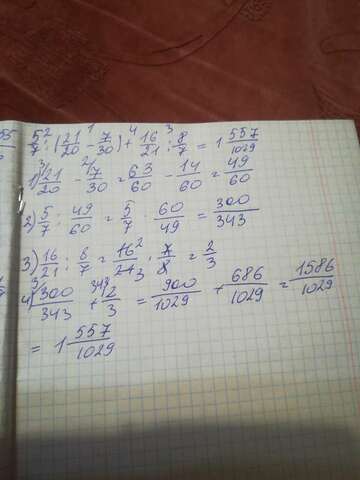 5/7 : (21/20 - 7/30) + 16/21 : 8/7 = 1 557/1029
1) 21/20 - 7/30 = 63/60 - 14/60 = 49/60
2) 5/7 : 49/60 = 5/7 · 60/49 = 300/343
3) 16/21 : 8/7 = 16/21 · 7/8 = 2/3
4) 300/343 + 2/3 = 900/1029 + 686/1029 = 1586/1029
= 1 557/1029